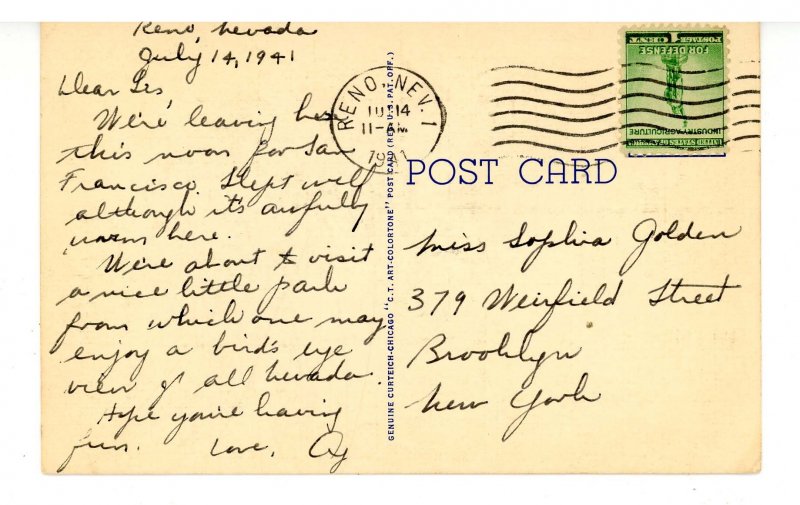 Reno, Nevada
July 14, 1941
Dear Sis
We're leaving here
this noon for San
Francisco. Slept well
although it's awfully
warm here.
We're about to visit
a nice little park
from which one may
enjoy a bird's eye
view of all Nevada.
Hope you're having
fun. Love,
GENUINE CURTEICH-CHICAGO "C.T. ART-COLORTONE" POST CARD (REG. U.S. PAT. OFF.)
RENO, NEV. 1
JUL 14
11-AM
1941
UNITED STATES OF AMERICA
INDUSTRY AGRICULTURE
FOR DEFENSE
POSTAGE 1 CENT
POST CARD
Miss Sophia Golden
379 Weirfield Street
Brooklyn
New York